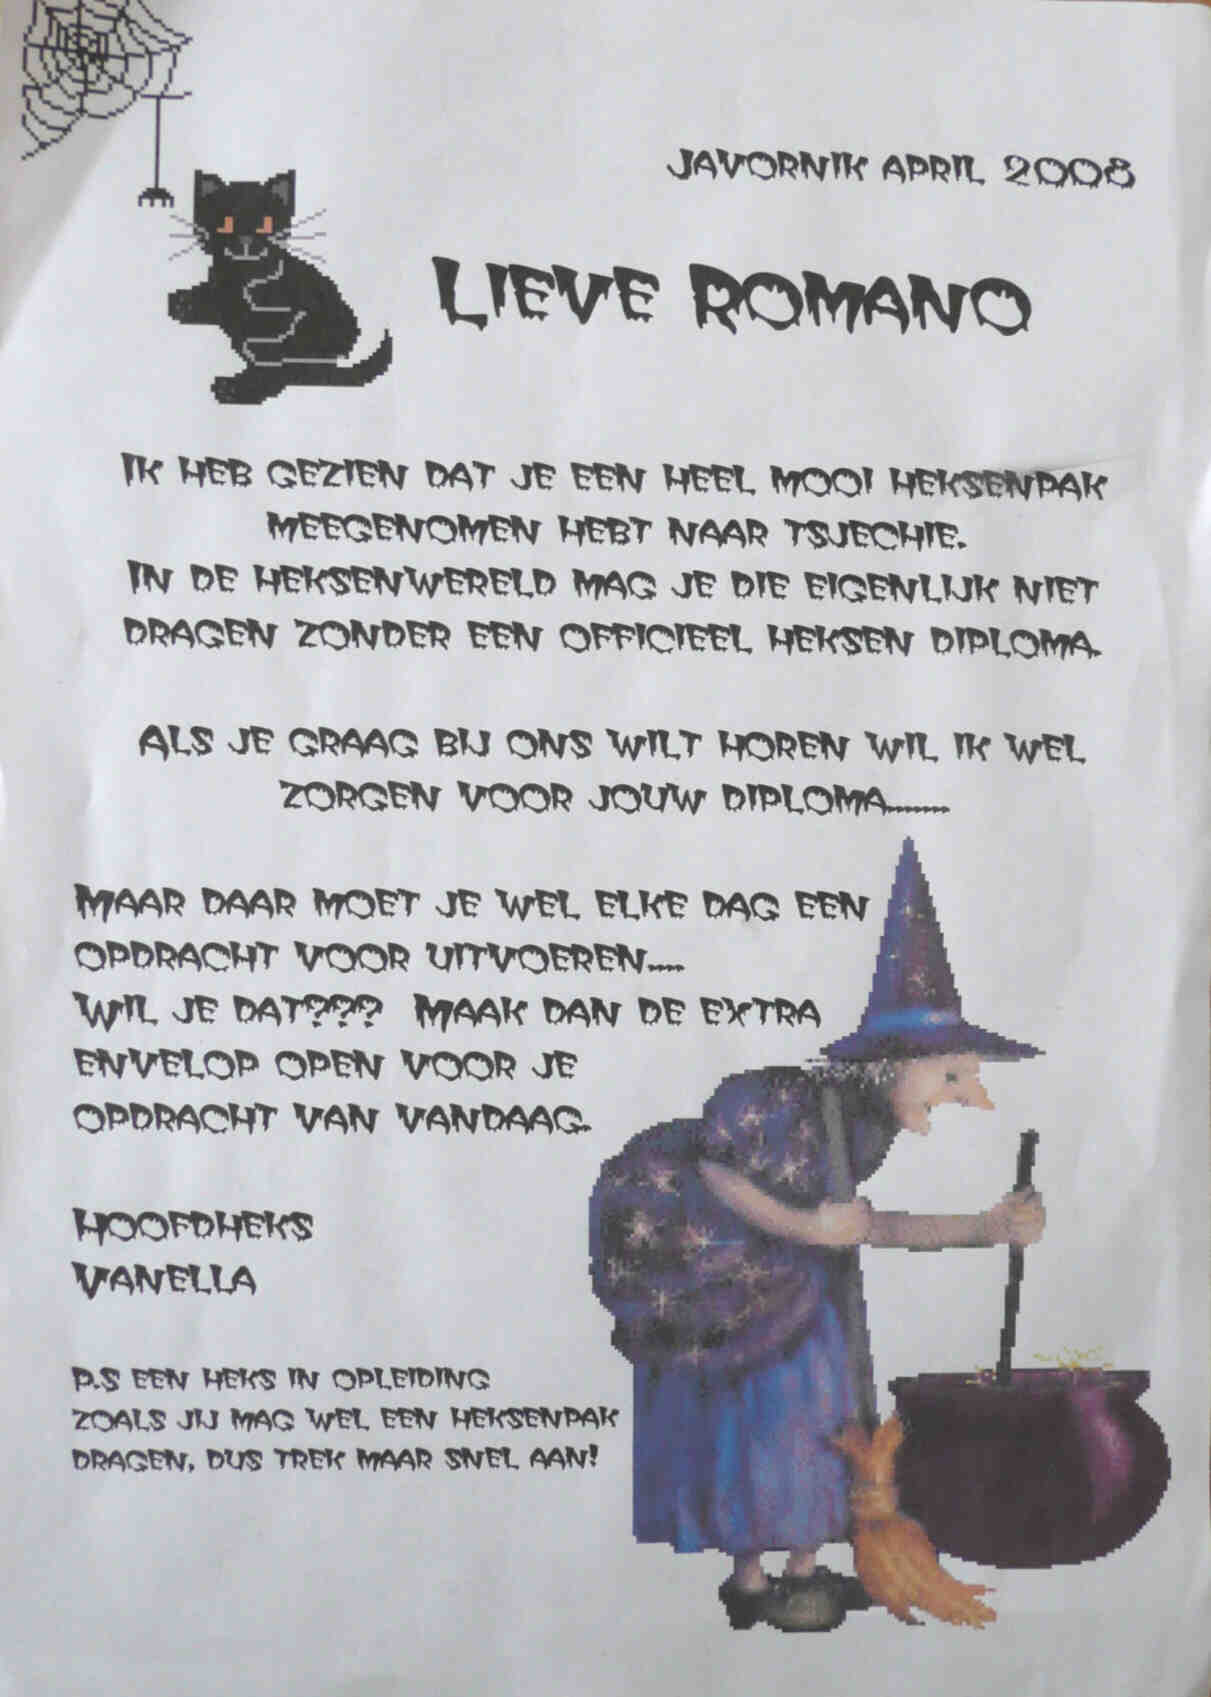 JAVORNIK APRIL 2008
LIEVE ROMANO
IK HEB GEZIEN DAT JE EEN HEEL MOOI HEKSENPAK
MEEGENOMEN HEBT NAAR TSJECHIE.
IN DE HEKSENWERELD MAG JE DIE EIGENLIJK NIET
DRAGEN ZONDER EEN OFFICIEEL HEKSEN DIPLOMA.
ALS JE GRAAG BIJ ONS WILT HOREN WIL IK WEL
ZORGEN VOOR JOUW DIPLOMA........
MAAR DAAR MOET JE WEL ELKE DAG EEN
OPDRACHT VOOR UITVOEREN....
WIL JE DAT??? MAAK DAN DE EXTRA
ENVELOP OPEN VOOR JE
OPDRACHT VAN VANDAAG.
HOOFDHEKS
VANELLA
P.S EEN HEKS IN OPLEIDING
ZOALS JIJ MAG WEL EEN HEKSENPAK
DRAGEN, DUS TREK MAAR SNEL AAN!